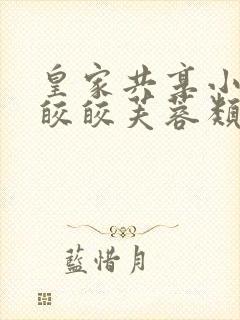 皇家共享小
皎皎芙蓉類
藍惜月